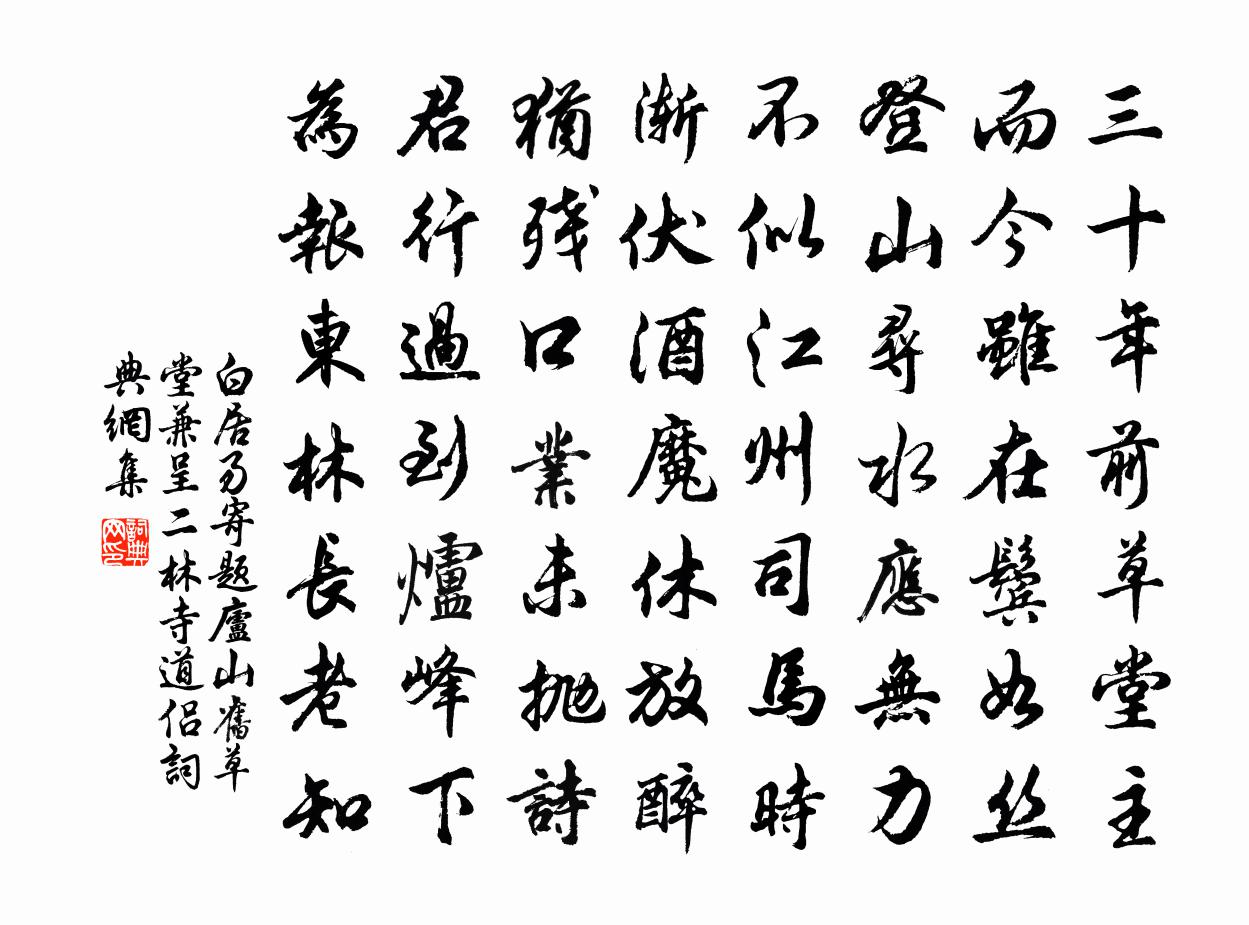 三十年前草堂主
而今雖在鬢如丝
登山尋水應無力
不似江州司馬時
漸伏酒魔休放醉
猶残口業未抛詩
君行過到爐峰下
為報東林長老知
白居易寄题廬山舊草
堂兼呈二林寺道侣詞
典網集
詞典网印